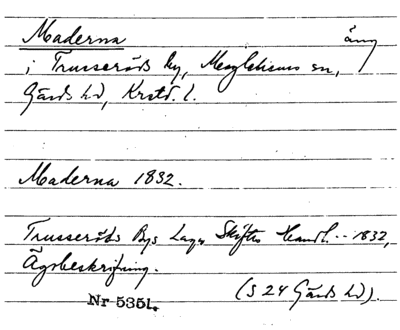 Maderna äng
i Trusseröds by, Maglehems sn,
Gärds hd, Krstd. l.
Maderna 1832.
Trusseröds Bys Laga Skiftes Handl. -- 1832,
Ägobeskrifning.
Nr 5351. (S 24 Gärds hd).